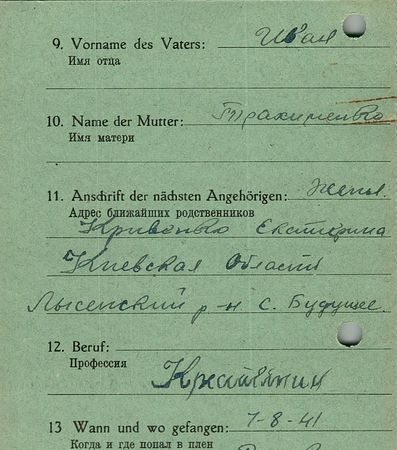 9. Vorname des Vaters: Иван
Имя отца
10. Name der Mutter: Трахименко
Имя матери
11. Anschrift der nächsten Angehörigen: Жены.
Адрес ближайших родственников
Кривенко Екатерина
Киевская Область
Лысенский р-н с. Будущее.
12. Beruf:
Профессия
Крестьянин
13 Wann und wo gefangen: 7-8-41
Когда и где попал в плен